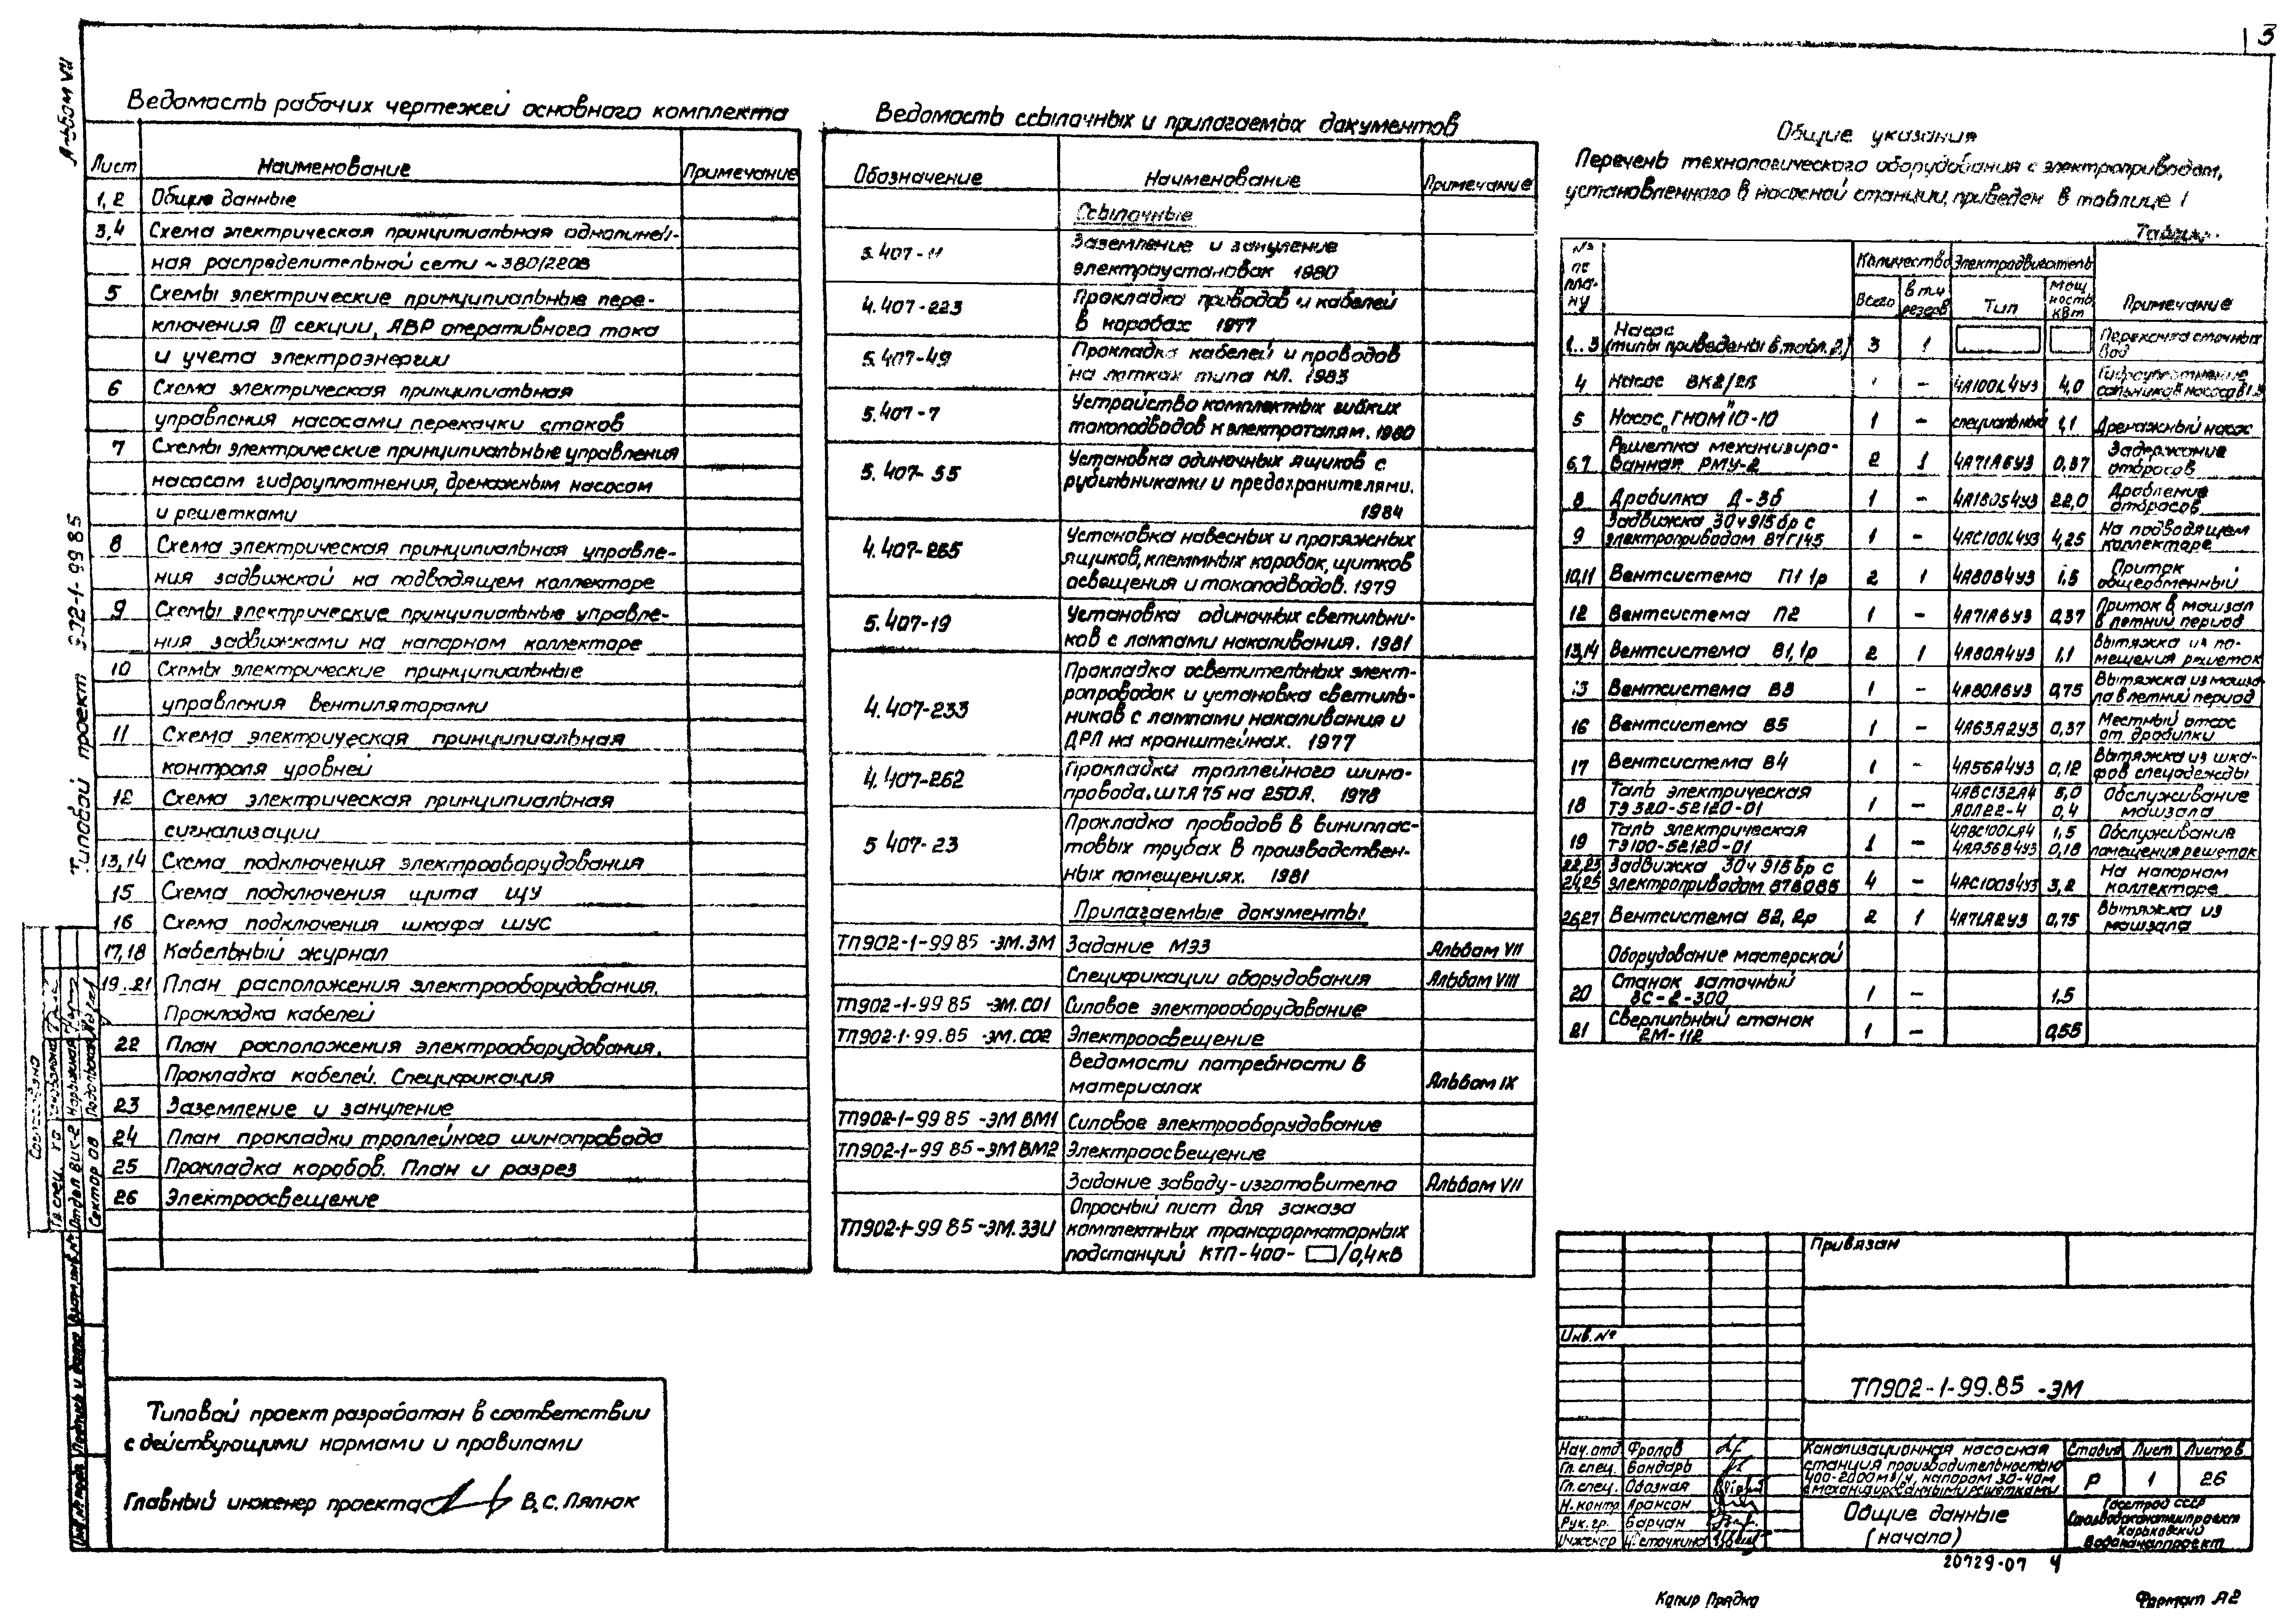 3
Альбом VII
Типовой проект 902-1-99 85
Ведомость рабочих чертежей основного комплекта
Лист Наименование Примечание
1,2 Общие данные
3,4 Схема электрическая принципиальная однолиней-
ная распределительной сети ~380/220В
5 Схемы электрические принципиальные пере-
ключения III секции, АВР оперативного тока
и учета электроэнергии
6 Схема электрическая принципиальная
управления насосами перекачки стоков
7 Схемы электрические принципиальные управления
насосом гидроуплотнения, дренажным насосом
и решетками
8 Схема электрическая принципиальная управле-
ния задвижкой на подводящем коллекторе
9 Схемы электрические принципиальные управле-
ния задвижками на напорном коллекторе
10 Схемы электрические принципиальные
управления вентиляторами
11 Схема электрическая принципиальная
контроля уровней
12 Схема электрическая принципиальная
сигнализации
13,14 Схема подключения электрооборудования
15 Схема подключения щита ЩУ
16 Схема подключения шкафа ШУС
17,18 Кабельный журнал
19..21 План расположения электрооборудования.
Прокладка кабелей
22 План расположения электрооборудования.
Прокладка кабелей. Спецификация
23 Заземление и зануление
24 План прокладки троллейного шинопровода
25 Прокладка коробов. План и разрез
26 Электроосвещение
Ведомость ссылочных и прилагаемых документов
Обозначение Наименование Примечание
Ссылочные
5.407-11 Заземление и зануление
электроустановок 1980
4.407-223 Прокладка проводов и кабелей
в коробах 1977
5.407-49 Прокладка кабелей и проводов
на лотках типа НЛ. 1983
5.407-7 Устройство комплектных гибких
токоподводов к электроталям. 1980
5.407-55 Установка одиночных ящиков с
рубильниками и предохранителями.
1984
4.407-265 Установка навесных и протяжных
ящиков, клеммных коробок, щитков
освещения и токоподводов. 1979
5.407-19 Установка одиночных светильни-
ков с лампами накаливания. 1981
4.407-233 Прокладка осветительных элект-
ропроводок и установка светиль-
ников с лампами накаливания и
ДРЛ на кронштейнах. 1977
4.407-262 Прокладка троллейного шино-
провода ШТА 75 на 250А. 1978
5 407-23 Прокладка проводов в винеплас-
товых трубах в производствен-
ных помещениях. 1981
Прилагаемые документы
ТП902-1-99 85 -ЭМ.ЗМ Задание МЭЗ Альбом VII
Спецификации оборудования Альбом VIII
ТП902-1-99 85 -ЭМ.СО1 Силовое электрооборудование
ТП902-1-99.85 -ЭМ.СО2 Электроосвещение
Ведомости потребности в
материалах Альбом IX
ТП902-1-99 85 -ЭМ ВМ1 Силовое электрооборудование
ТП902-1-99 85 -ЭМ ВМ2 Электроосвещение
Задание заводу-изготовителю Альбом VII
ТП902-1-99 85 -ЭМ.ЗЗИ Опросный лист для заказа
комплектных трансформаторных
подстанций КТП-400- /0,4кВ
Общие указания
Перечень технологического оборудования с электроприводом,
установленного в насосной станции, приведен в таблице 1
№ по плану Количество Электродвигатель
Всего в т.ч. резерв Тип Мощность кВт Примечание
1..3 Насос (типы приведены в табл. 2) 3 1 Перекачка сточных вод
4 Насос ВК2/26 - 4А100L4У3 4,0 Гидроуплотнение сальников насосов 1..3
5 Насос „ГНОМ" 10-10 1 - специальный 1,1 Дренажный насос
6,7 Решетка механизиро-
ванная РМУ-2 2 1 4А71А6У3 0,37 Задержание отбросов
8 Дробилка Д-3б 1 - 4А180S4У3 22,0 Дробление отбросов
9 Задвижка 30ч915бр с
электроприводом 87Г145 1 - 4АС100L4У3 4,25 На подводящем коллекторе
10,11 Вентсистема П1 1р 2 1 4А80В4У3 1,5 Приток общеобменный
12 Вентсистема П2 1 - 4А71А6У3 0,37 Приток в машзал в летний период
13,14 Вентсистема В1,1р 2 1 4А80А4У3 1,1 Вытяжка из по-
мещения решеток
Вентсистема В3 1 - 4А80А6У3 0,75 Вытяжка из машза-
ла в летний период
16 Вентсистема В5 1 - 4А63А2У3 0,37 Местный отсос от дробилки
17 Вентсистема В4 1 - 4А56А4У3 0,12 Вытяжка из шка-
фов спецодежды
18 Таль электрическая
ТЭ 320-52120-01 1 - 4АВС132А4 5,0 Обслуживание
АОЛ22-4 0,4 машзала
19 Таль электрическая
ТЭ100-52120-01 1 - 4АВС100LА4 1,5 Обслуживание
4АА56В4У3 0,18 помещения решеток
22,23 Задвижка 30ч 915бр с
24,25 электроприводом 87В085 4 - 4АС100S4У3 3,2 На напорном коллекторе
26,27 Вентсистема В2, 2р 2 1 4А71А2У3 0,75 Вытяжка из машзала
Оборудование мастерской
20 Станок заточный
ЗС-2-300 1 - 1,5
21 Сверлильный станок
2М-112 1 - 0,55
Типовой проект разработан в соответствии
с действующими нормами и правилами
Главный инженер проекта В.С.Ляпюк
Привязан
Инв.№
ТП902-1-99.85 -ЭМ
Нач.отд Фролов
Гл.спец. Бондарь
Гл.спец.
Н.контр Арансон
Рук.гр. Барчан
Инженер
Канализационная насосная
станция производительностью
400-2000м3/ч, напором 30-40м
с механизированными решетками
Стадия Лист Листов
Р 1 26
Общие данные
(начало)
Госстрой СССР
Союзводоканалниипроект
Харьковский
Водоканалпроект
20729-07 4
Копир Прядко
Формат А2